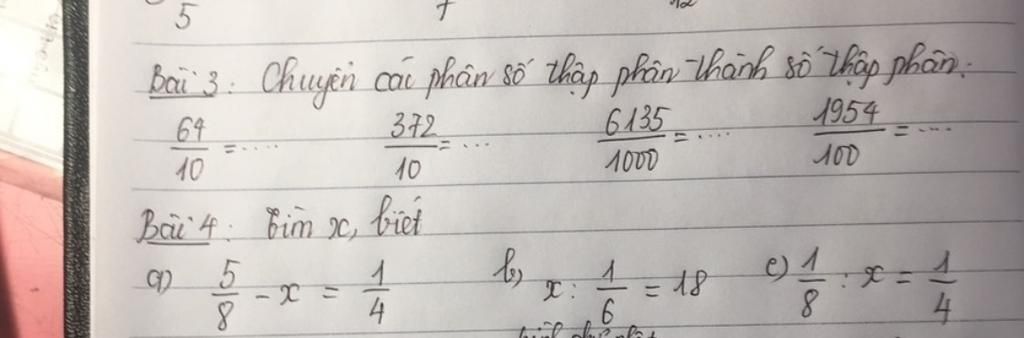 5 7 12
Bài 3: Chuyển các phân số thập phân thành số thập phân:
64/10 = .... 372/10 = ... 6135/1000 = .... 1954/100 = ...
Bài 4: Tìm x, biết
a) 5/8 - x = 1/4 b) x : 1/6 = 18 c) 1/8 : x = 1/4